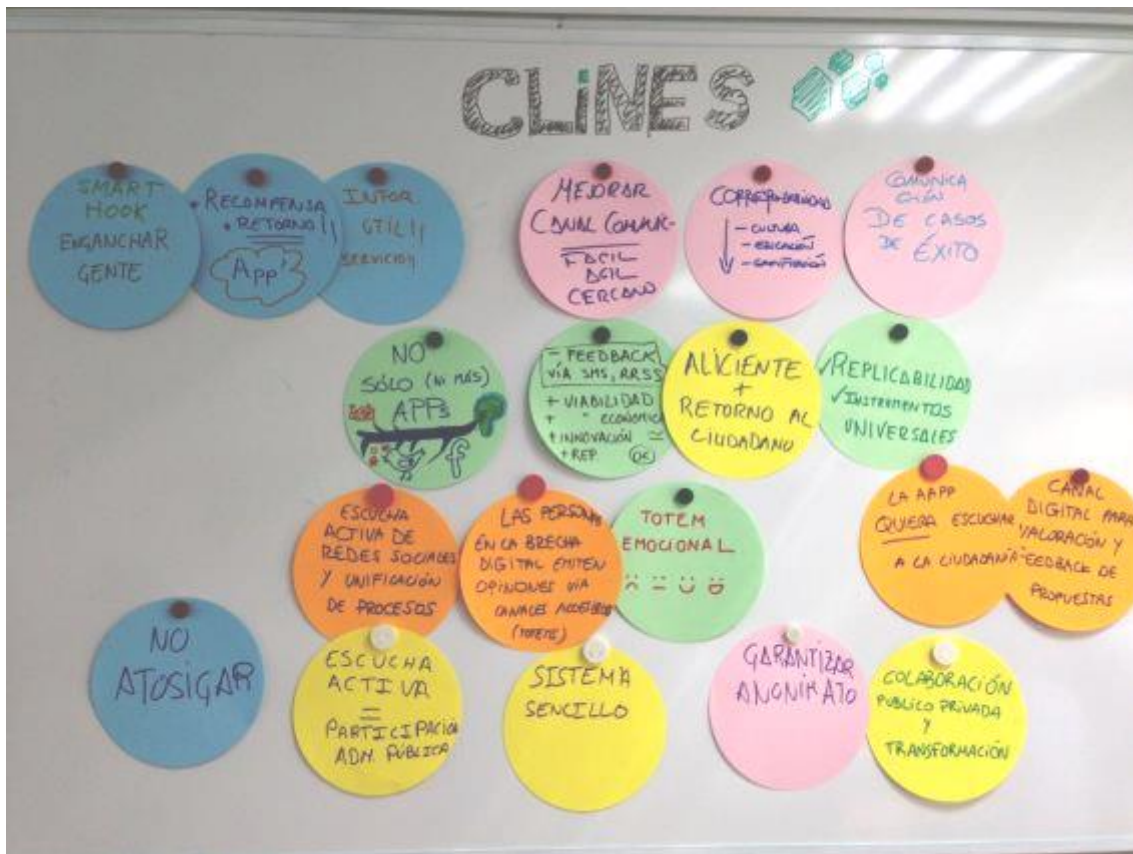 CLiNES
SMART
HOOK
ENGANCHAR
GENTE
• RECOMPENSA
• RETORNO!!
App'
INFOR
ÚTIL!!
SERVICIO!!
MEJORAR
CANAL COMUNIC-
FÁCIL
ÁGIL
CERCANO
CORRESPONSABILIDAD
- CULTURA
- EDUCACIÓN
- GAMIFICACIÓN
COMUNICA
CIÓN
DE CASOS
DE ÉXITO
NO
SÓLO (NI MÁS)
APPs
f
- FEEDBACK
VÍA SMS, RRSS
+ VIABILIDAD
+ " ECONÓMICA
+ INNOVACIÓN
+ REP. OK
ALICIENTE
+
RETORNO AL
CIUDADANO
✓REPLICABILIDAD
✓INSTRUMENTOS
UNIVERSALES
ESCUCHA
ACTIVA DE
REDES SOCIALES
Y UNIFICACIÓN
DE PROCESOS
LAS PERSONAS
EN LA BRECHA
DIGITAL EMITEN
OPINIONES VÍA
CANALES ACCESIBLES
(TOTEMS)
TOTEM
EMOCIONAL
LA AAPP
QUIERA ESCUCHAR
A LA CIUDADANÍA
CANAL
DIGITAL PARA
VALORACIÓN Y
FEEDBACK DE
PROPUESTAS
NO
ATOSIGAR
ESCUCHA
ACTIVA
=
PARTICIPACIÓN
ADM. PÚBLICA
SISTEMA
SENCILLO
GARANTIZAR
ANONIMATO
COLABORACIÓN
PUBLICO PRIVADA
Y
TRANSFORMACIÓN